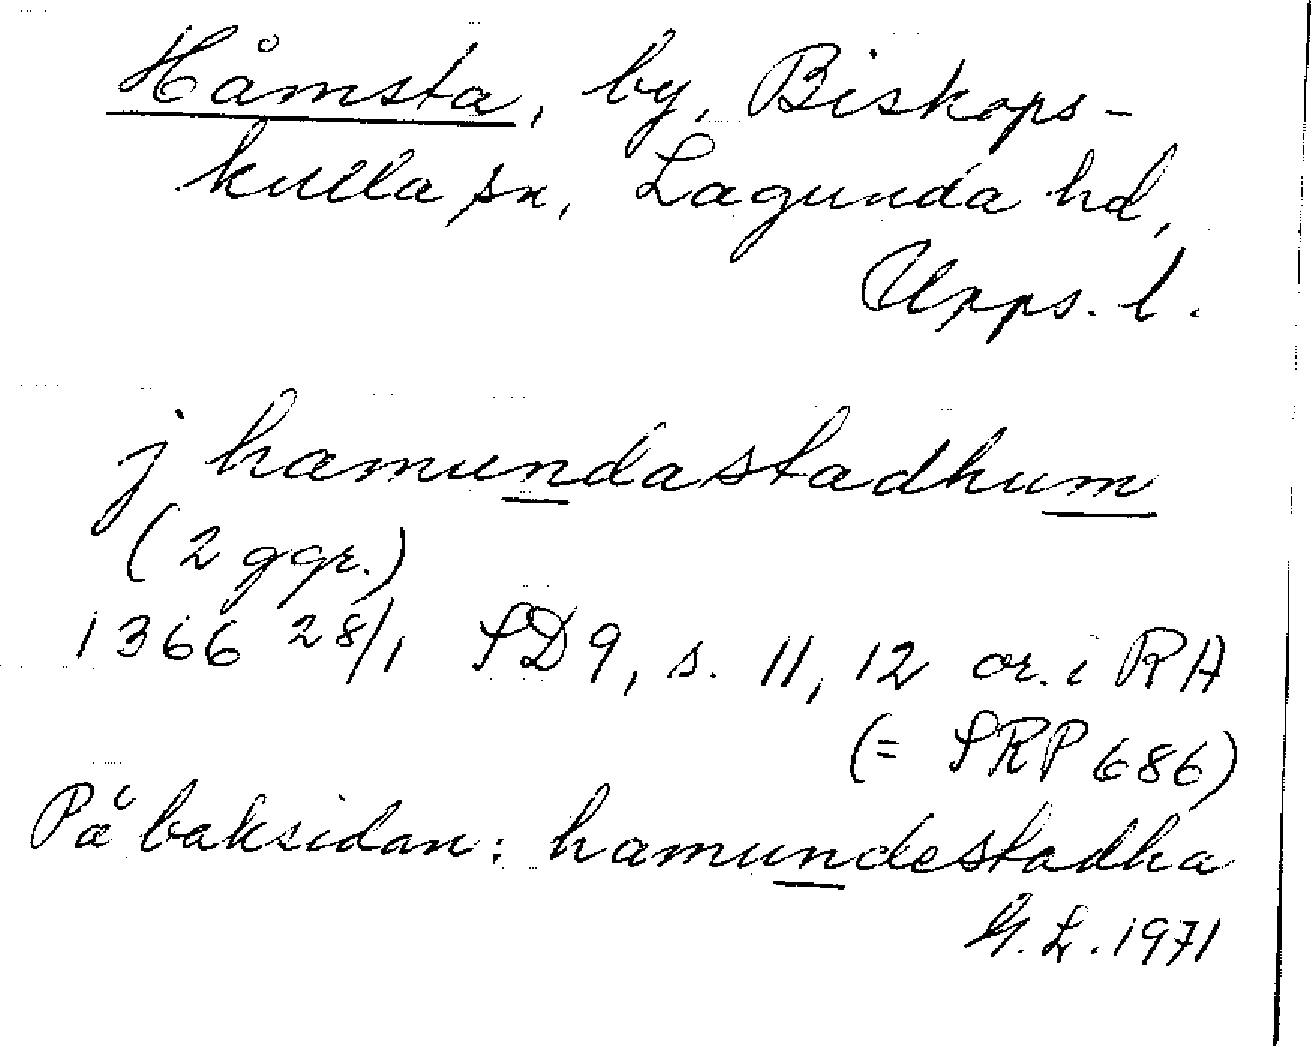 Håmsta, by, Biskops-
kulla sn, Lagunda hd,
Upps. l.
j hamundastadhum
(2 ggr.)
1366 28/1 SD 9, s. 11, 12 or. i RA
(= SRP 686)
På baksidan: hamundestadha
G. L. 1971